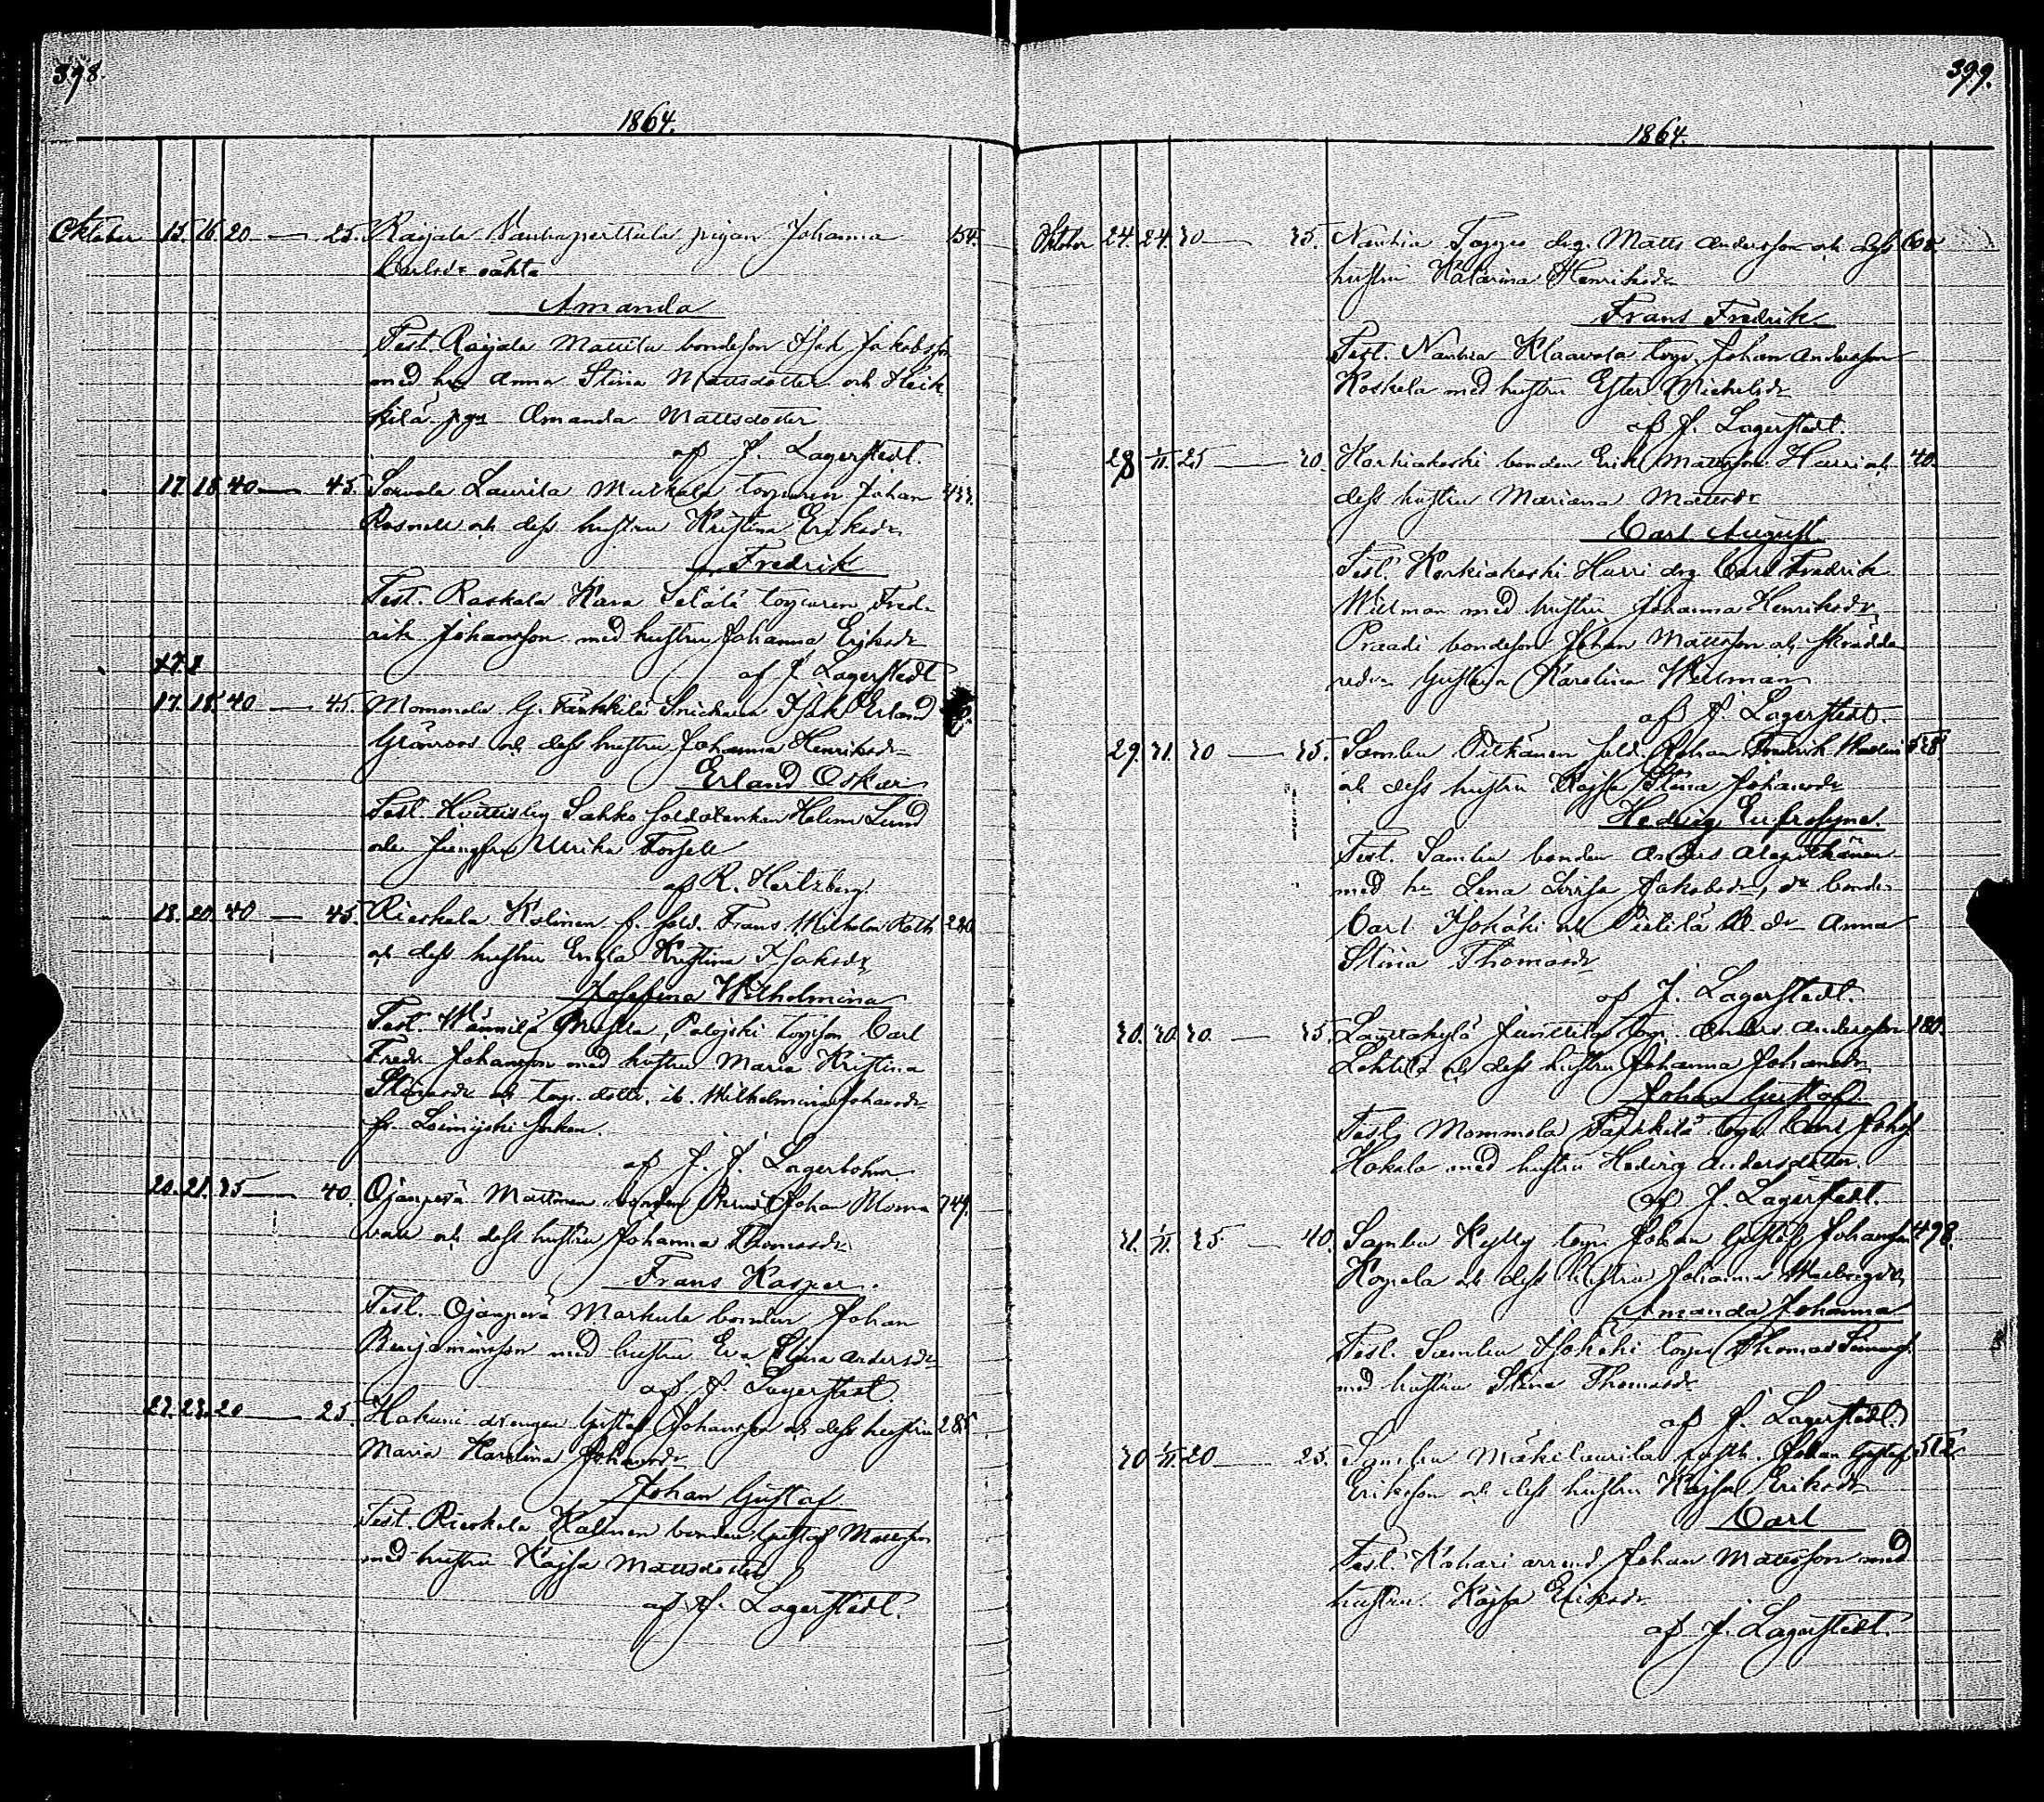 398.
1864.
Oktober 15. 16. 20 — 25. Raijala Vanhaperttula pigan Johanna 154.
Carlsdr oäkta
Amanda
Test. Raijala Mattila bondeson Isak Jakobsson
med hu Anna Stina Mattsdotter och Heik
kilä pgn Amanda Mattsdotter
af J. Lagerstedt.
17. 18. 40 — 45. Sorvola Laurila torparen Johan
Rosnell och dess hustru Kristina Eriksdr
Fredrik
Test. Raskala Kara torparen Fred-
rik Johansson med hustru Johanna Eriksdr
af J. Lagerstedt
17. 18. 40 — 45. Mommola G. Pärkkilä Snickaren Isak Erland
Grönroos och dess hustru Johanna Henriksdr
Erland Oskar
Test. Huittisby Sahko soldatenkan Helena Lund
och jungfru Ulrika Forsell
af R. Hertzberg.
18. 20. 40 — 45. Rieskala Kalinen f. sold. Frans Wilhelm Roth 280
och dess hustru Engla Kristina Isaksdr
Josefina Wilhelmina
Test. Männilä Palojoki torpson Carl
Fredr. Johansson med hustru Maria Kristina
och torp. dottr. ib. Wilhelmina Johansdr
fr. Loimijoki socken.
af J. J. Lagerbohm
20. 21. 35 — 40. Ojanperä Mattinen bonden Johan 349.
och dess hustru Johanna Thomasdr
Frans Kasper.
Test. Ojanperä Markula bonden Johan
Benjaminsson med hustru Eva Stina Andersdr
af J. Lagerstedt
23. 23. 20 — 25. Hakuni drengen Gustaf Johansson och dess hustru 285
Maria Karolina Johansdr
Johan Gustaf
Test. Rieskala Kalinen bonden Gustaf Mattsson
med hustru Kajsa Mattsdotter
af J. Lagerstedt.
399.
1864.
Oktober 24. 24. 30 — 35. Nanhia drg. Matts Andersson och dess
hustru Katarina Henriksdr
Frans Fredrik.
Test. Nanhia Klaavola torp. Johan Andersson
Koskela med hustru Ester Michelsdr
af J. Lagerstedt.
28 1/11. 25 — 30. Korkiakoski bonden Erik Mattsson Harri och 40.
dess hustru Mariana Mattsdr
Carl August
Test. Korkiakoski Harri drg Carl Fredrik
Widman med hustru Johanna Henriksdr
Praadi bondeson Johan Mattsson och skrädda-
redr Gustava Karolina Widman
af J. Lagerstedt.
29. 31. 30 — 35. Sambu Pitkänen sold. Johan Fredrik
och dess hustru Kajsa Stina Johansdr
Hedvig Eufrosyne.
Test. Sambu bonden Anders Alapitkänen
med hu Lena Lovisa Jakobsdr, dr bonde
Carl Isohöki och Pietilä B. dr Anna
Stina Thomasdr
af J. Lagerstedt.
30. 30. 30. — 35. Lauttakylä Junttila torp. Anders Andersson 180.
Lehtilä och dess hustru Johanna Johansdr
Johan Gustaf.
Test. Mommola Pärkkilä torp. Carl Johs.
Hakala med hustru Hedvig Andersdotter.
af J. Lagerstedt.
31. 1/11. 35 — 40. Sambu torp. Johan Gustaf Johansson 498.
och dess hustru Johanna
Amanda Johanna
Test. Sambu Isohöki torp. Thomas
med hustru Stina Thomasdr
af J. Lagerstedt.
30 1/11 20 — 25. Sambu Mäkilaurila Johan Gustaf 512.
Eriksson och dess hustru Kajsa Eriksdr
Carl
Test. Kohari arrend. Johan Mattsson med
hustru Kajsa Eriksdr
af J. Lagerstedt.